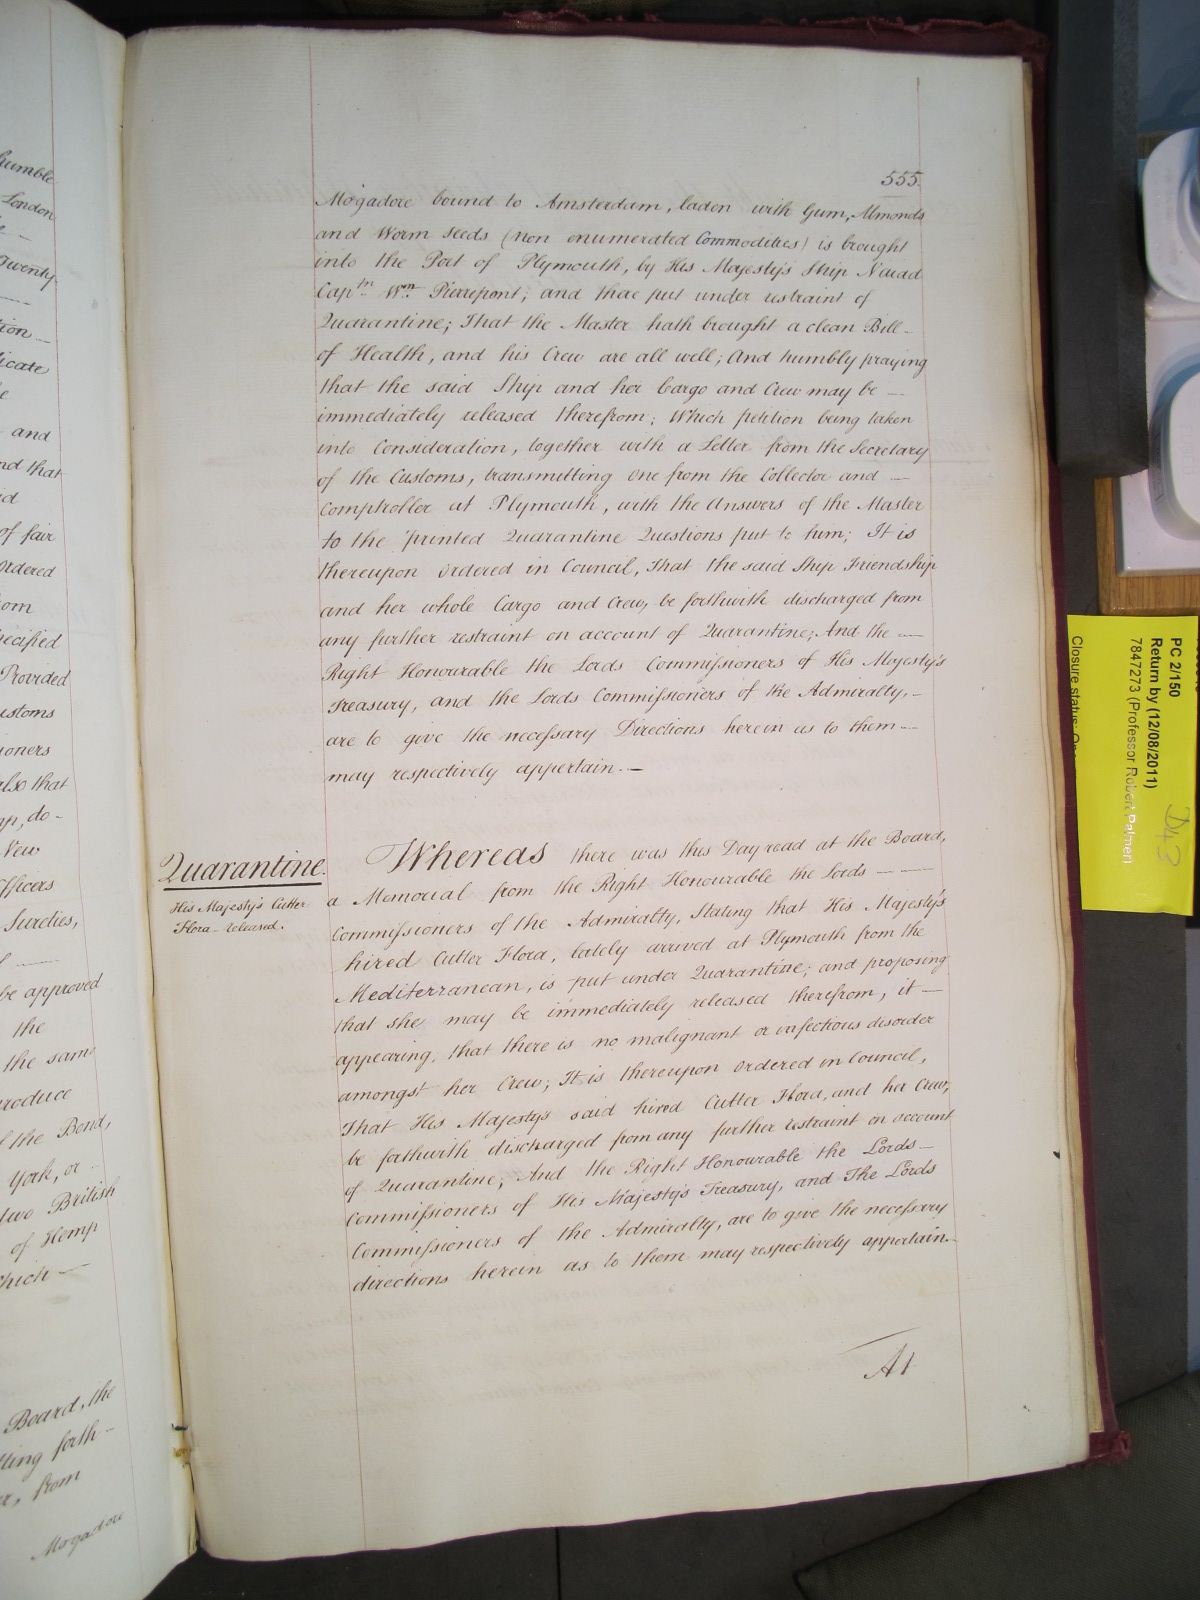 humble
London
Twenty
tion
licate
and
nd that
id
of fair
ordered
om
pecified
Provided
ustoms
ioners
also that
p, do-
New
Officers
Sureties,
be approved
the
the same
produce
the Bond,
York, or
two British
of Hemp
which
Board, the
tting forth
from
Mogadore
555.
Mogadore bound to Amsterdam, laden with Gum, Almonds
and Worm seeds (non enumerated Commodities) is brought
into the Port of Plymouth, by His Majesty's Ship Naiad
Captn. Wm. Pierrepont; and there put under restraint of
Quarantine; That the Master hath brought a clean Bill
of Health, and his Crew are all well; And humbly praying
that the said Ship and her Cargo and Crew may be
immediately released therefrom; Which petition being taken
into Consideration, together with a Letter from the Secretary
of the Customs, transmitting one from the Collector and
Comptroller at Plymouth, with the Answers of the Master
to the printed Quarantine Questions put to him; It is
thereupon ordered in Council, That the said Ship Friendship
and her whole Cargo and Crew, be forthwith discharged from
any further restraint on account of Quarantine; And the
Right Honourable the Lords Commissioners of His Majesty's
Treasury, and the Lords Commissioners of the Admiralty,
are to give the necessary Directions herein as to them
may respectively appertain.
Quarantine.
His Majesty's Cutter
Flora released.
Whereas there was this Day read at the Board,
a Memorial from the Right Honourable the Lords
Commissioners of the Admiralty, Stating that His Majesty's
hired Cutter Flora, lately arrived at Plymouth from the
Mediterranean, is put under Quarantine; and proposing
that she may be immediately released therefrom, it
appearing, that there is no malignant or infectious disorder
amongst her Crew; It is thereupon ordered in Council,
That His Majesty's said hired Cutter Flora, and her Crew,
be forthwith discharged from any further restraint on account
of Quarantine; And the Right Honourable the Lords
Commissioners of His Majesty's Treasury, and The Lords
Commissioners of the Admiralty, are to give the necessary
directions herein as to them may respectively appertain.
At
PC 2/150
Return by (12/08/2011)
7847273 (Professor Robert Palmer)
Closure status:
D43